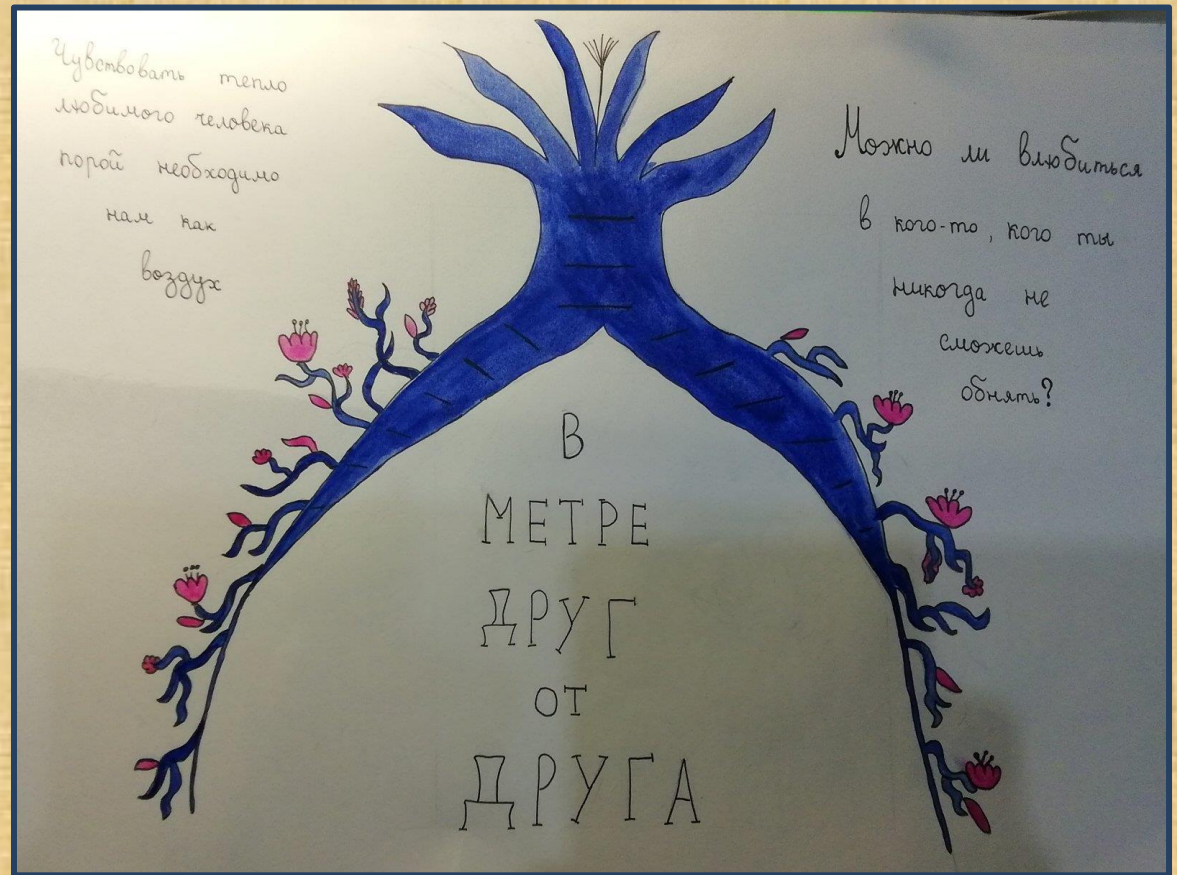 Чувствовать тепло
любимого человека
порой необходимо
нам как
воздух
Можно ли влюбиться
в кого-то, кого ты
никогда не
сможешь
обнять?
В
МЕТРЕ
ДРУГ
ОТ
ДРУГА